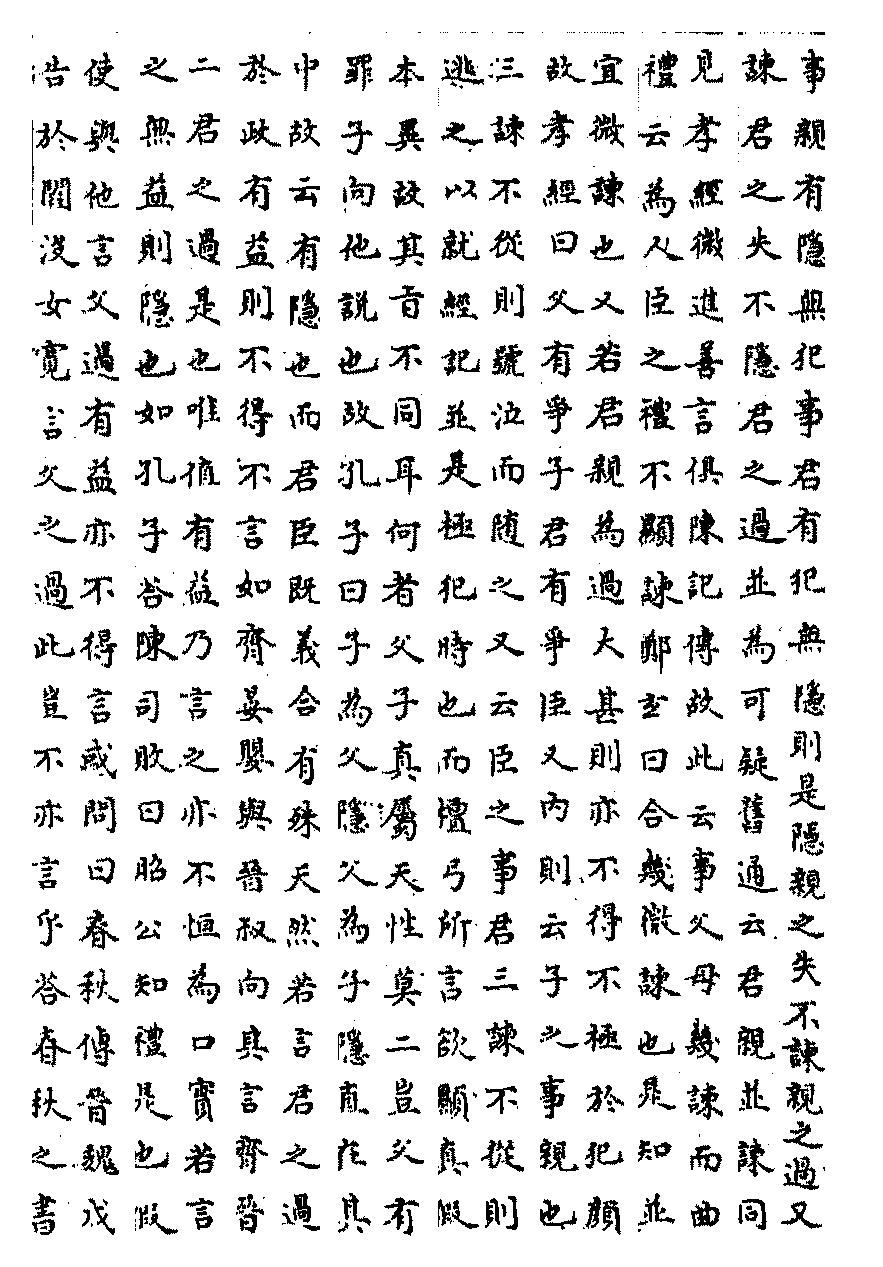 事親有隱無犯事君有犯無隱則是隱親之失不諫親之過又
諫君之失不隱君之過並為可疑舊通云君親並諫同
見孝經微進善言俱陳記傳故此云事父母幾諫而曲
禮云為人臣之禮不顯諫鄭玄曰合幾微諫也是知並
宜微諫也又若君親為過大甚則亦不得不極於犯顏
故孝經曰父有爭子君有爭臣又內則云子之事親也
三諫不從則號泣而隨之又云臣之事君三諫不從則
逃之以就經記並是極犯時也而檀弓所言欲顯真假
本異故其旨不同耳何者父子真屬天性莫二豈父有
罪子向他說也故孔子曰子為父隱父為子隱直在其
中故云有隱也而君臣既義合有殊天然若言君之過
於政有益則不得不言如齊晏嬰與晉叔向其言齊晉
二君之過是也唯值有益乃言之亦不恒為口實若言
之無益則隱也如孔子答陳司敗曰昭公知禮是也假
使與他言父過有益亦不得言或問曰春秋傳晉魏戊
告於閻沒女寬言父之過此豈不亦言乎答春秋之書